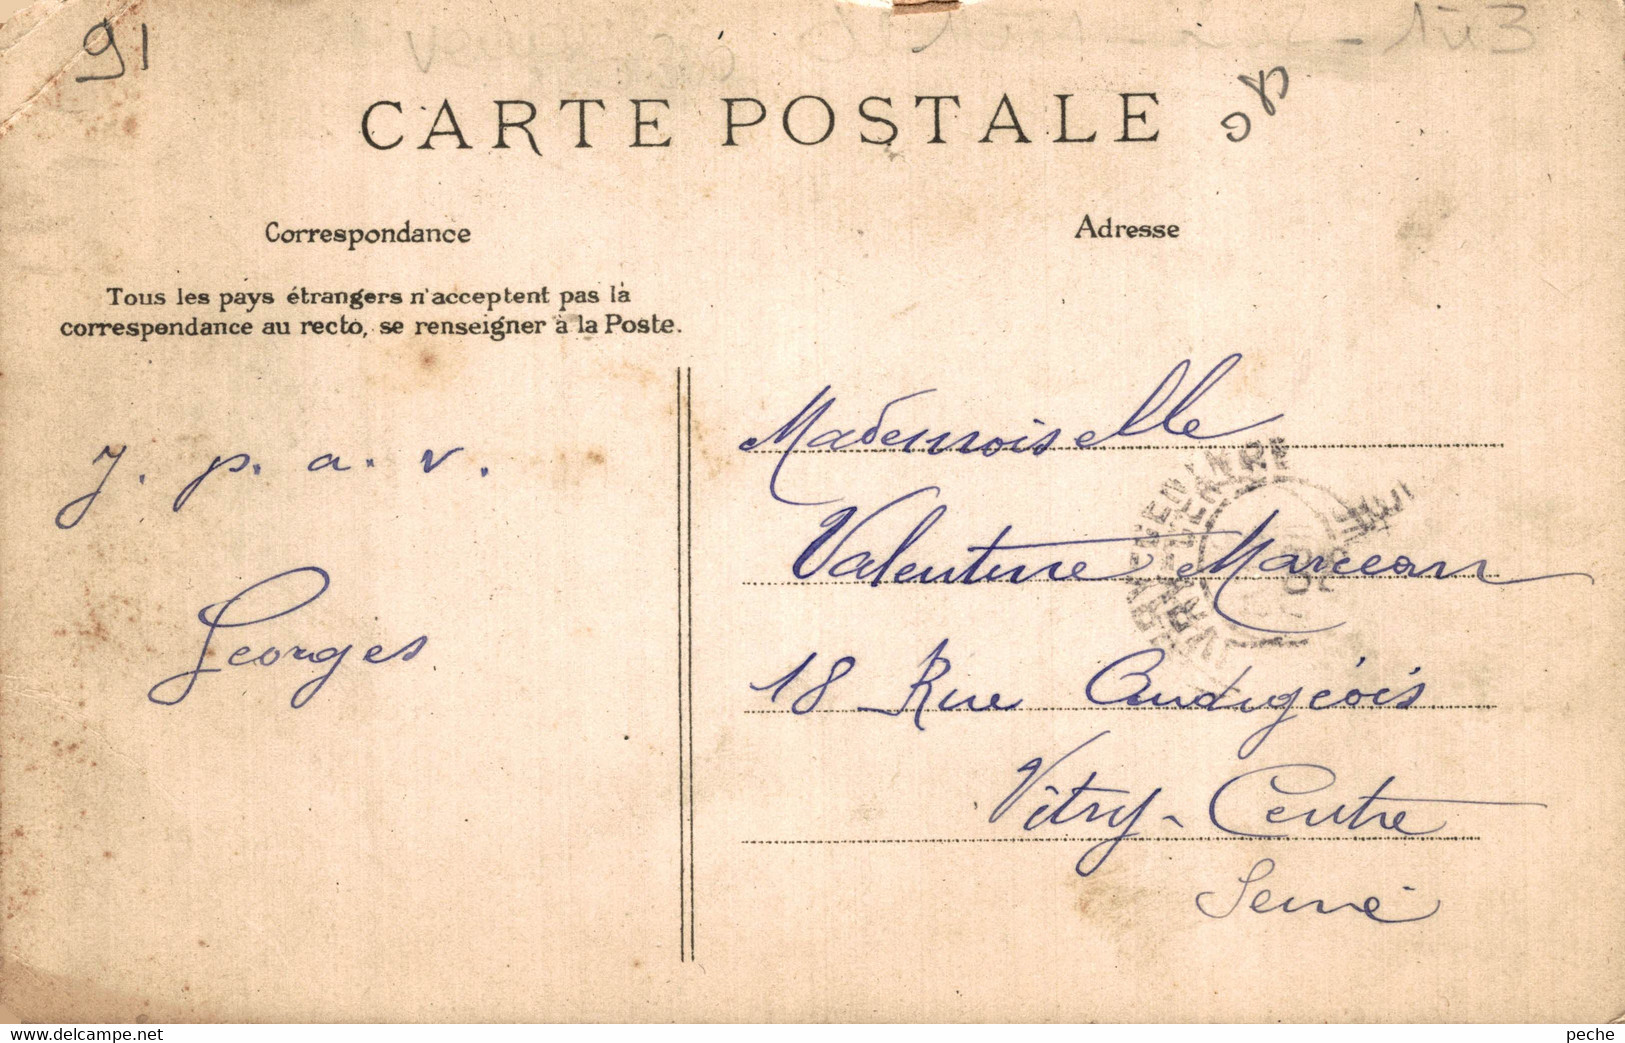 91
CARTE POSTALE
Correspondance
Adresse
Tous les pays étrangers n'acceptent pas la
correspondance au recto, se renseigner à la Poste.
J. p. a. v.
Georges
Mademoiselle
Valentine Marceau
18 Rue Audigéois
Vitry-Centre
Seine
www.delcampe.net
peche